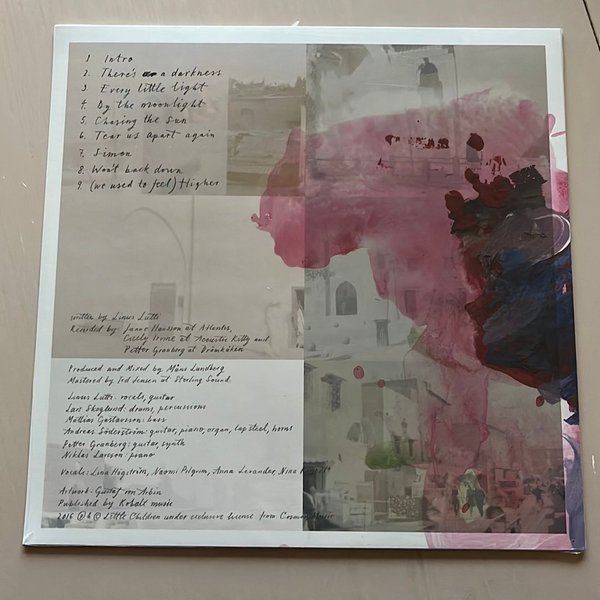 1. Intro
2. There's a darkness
3. Every little light
4. By the moonlight
5. Chasing the sun
6. Tear us apart again
7. Simon
8. Won't back down
9. (we used to feel) Higher
written by Linus Lutti
Recorded by: Janne Hansson at Atlantis,
at Acoustic Kitty and
Petter Granberg at Drömkåken
Produced and Mixed by Måns Lundberg
Mastered by Ted Jensen at Sterling Sound
Linus Lutti: vocals, guitar
Lars Skoglund: drums, percussions
Mattias Gustavsson: bass
Andreas Söderström: guitar, piano, organ, lap steel, horns
Petter Granberg: guitar, synth
Niklas Larsson: piano
Vocals: Lina Högström, Naomi Pilgrim, Anna Levander, Nina
Artwork: Gustaf von Arbin
Published by Kobalt music
2016 ℗ & © Little Children under exclusive license from Cosmos Music